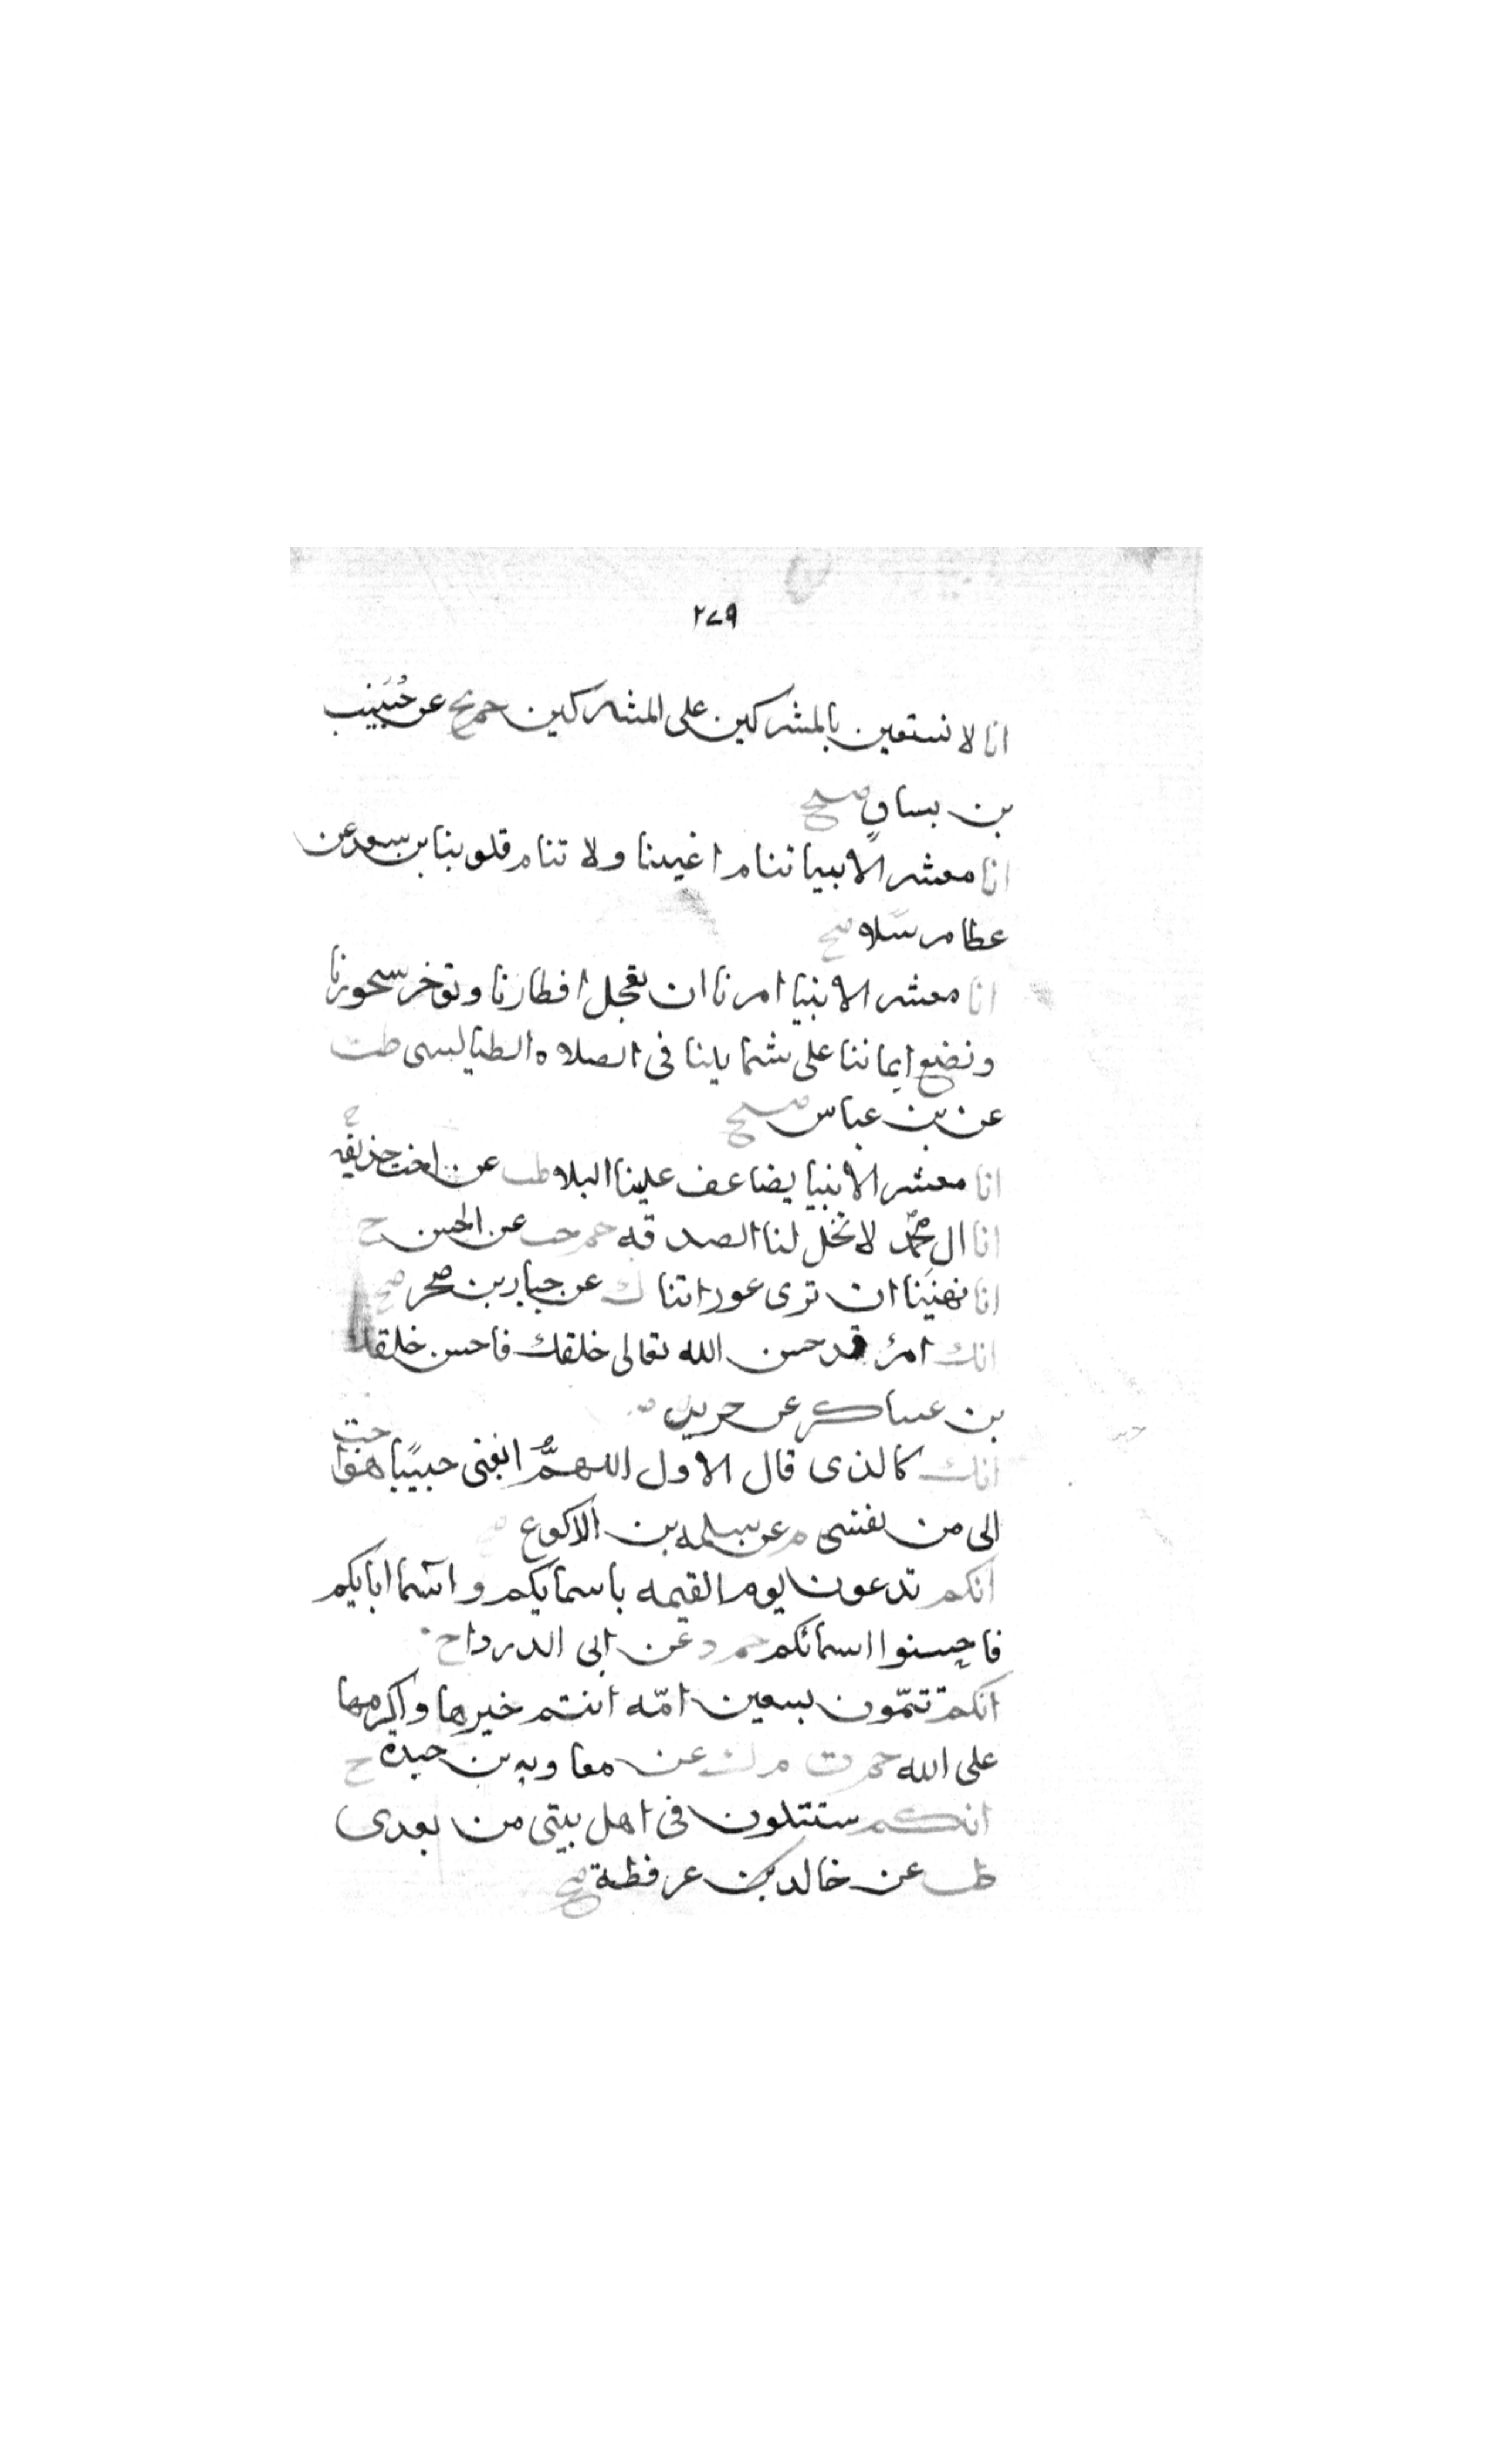 ٢٧٩
انا لا نستعين بالمشركين على المشركين حم تخ عن خُبَيْب
بن يساف صح
انا معشر الانبيا تنام اعيننا ولا تنام قلوبنا بن سعد عن
عطا مرسلا صح
انا معشر الانبيا امرنا ان نعجل افطارنا ونؤخر سحورنا
ونضع ايماننا على شمايلنا فى الصلاه الطيالسى طب
عن بن عباس صح
انا معشر الانبيا يضاعف علينا البلا طب عن اخت حذيفه ح
انا ال محمد لا تحل لنا الصدقه حم حب عن الحسن ح
انا نهينا ان ترى عوراتنا ك عن جبار بن صخر صح
انك امرؤ قد حسن الله تعالى خلقك فاحسن خلقك
بن عساكر عن جرير
انك كالذى قال الاول اللهمَّ ابغنى حبيبًا هو احب
الى من نفسى م عن سلمه بن الاكوع صح
انكم تدعون يوم القيمه باسمايكم واسما ابايكم
فاحسنوا اسمائكم حم د عن ابى الدردا ح
انكم تتمّون سبعين امّه انتم خيرها واكرمها
على الله حم ت ه ك عن معاويه بن حيدة ح
انكم ستبتلون فى اهل بيتى من بعدى
طب عن خالد بن عرفطة صح